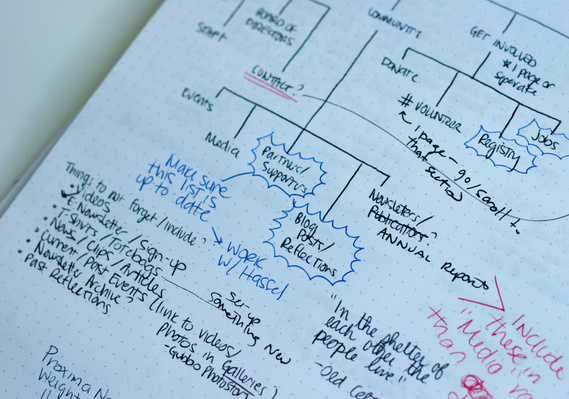 BOARD OF
DIRECTORS
STAFF
COMMUNITY
GET INVOLVED
* 1 page or
separate
CONTACT?
DONATE
# VOLUNTEER
REGISTRY
JOBS
1 page - go/scroll to
that section
Events
Media
Partners/
Supporters
Blog
Posts/
Reflections
Newsletters/
Publications?
ANNUAL REPORTS
Make sure
this list is
up to date
→ WORK
W/ Hassel
Things to not forget/include?
✓ Videos
• E Newsletter/Sign-up
• T-Shirts/Totebags
• News/Clips/Articles
• Current/Past Events (link to videos/
photos in Galleries)
• Newsletter Archive?
• Past Reflections
Set-up
Something New
"In the shelter of
each other the
people live"
Include
these in
"Media
than
Proxima
Weight